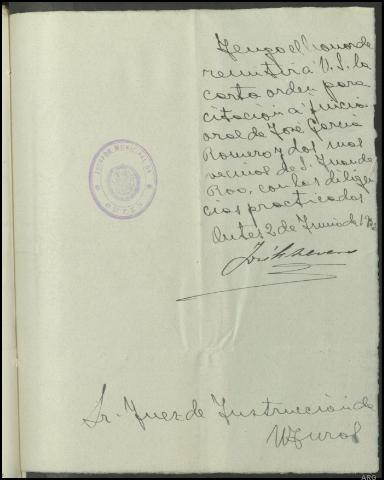 Tengo el honor de
remitir á V.S. la
carta orden para
citación a juicio
oral de José García
Romero y dos mas
vecinos de S. Juan de
Roo, con las diligen
cias practicadas
Outes 2 de Junio de 19
José
JUZGADO MUNICIPAL DE
OUTES
Sr. Juez de Instrucción de
Muros
ARG